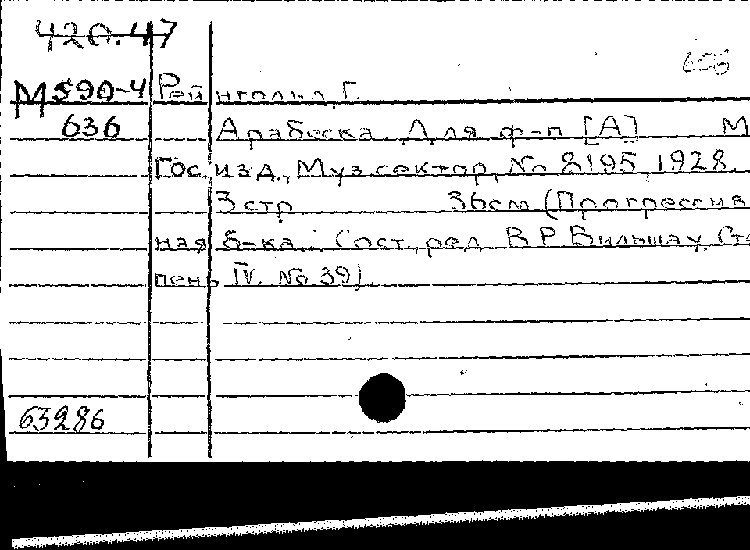 420.47
М 590-4 Рейнгольд, Г.
636 Арабеска. Для ф-п [А] М
Гос. изд., Муз. сектор, No 8195, 1928.
3 стр 36см (Прогрессив
ная б-ка. Сост., ред. В.Р. Вильшау. Сту
пень IV. No 39)
63286